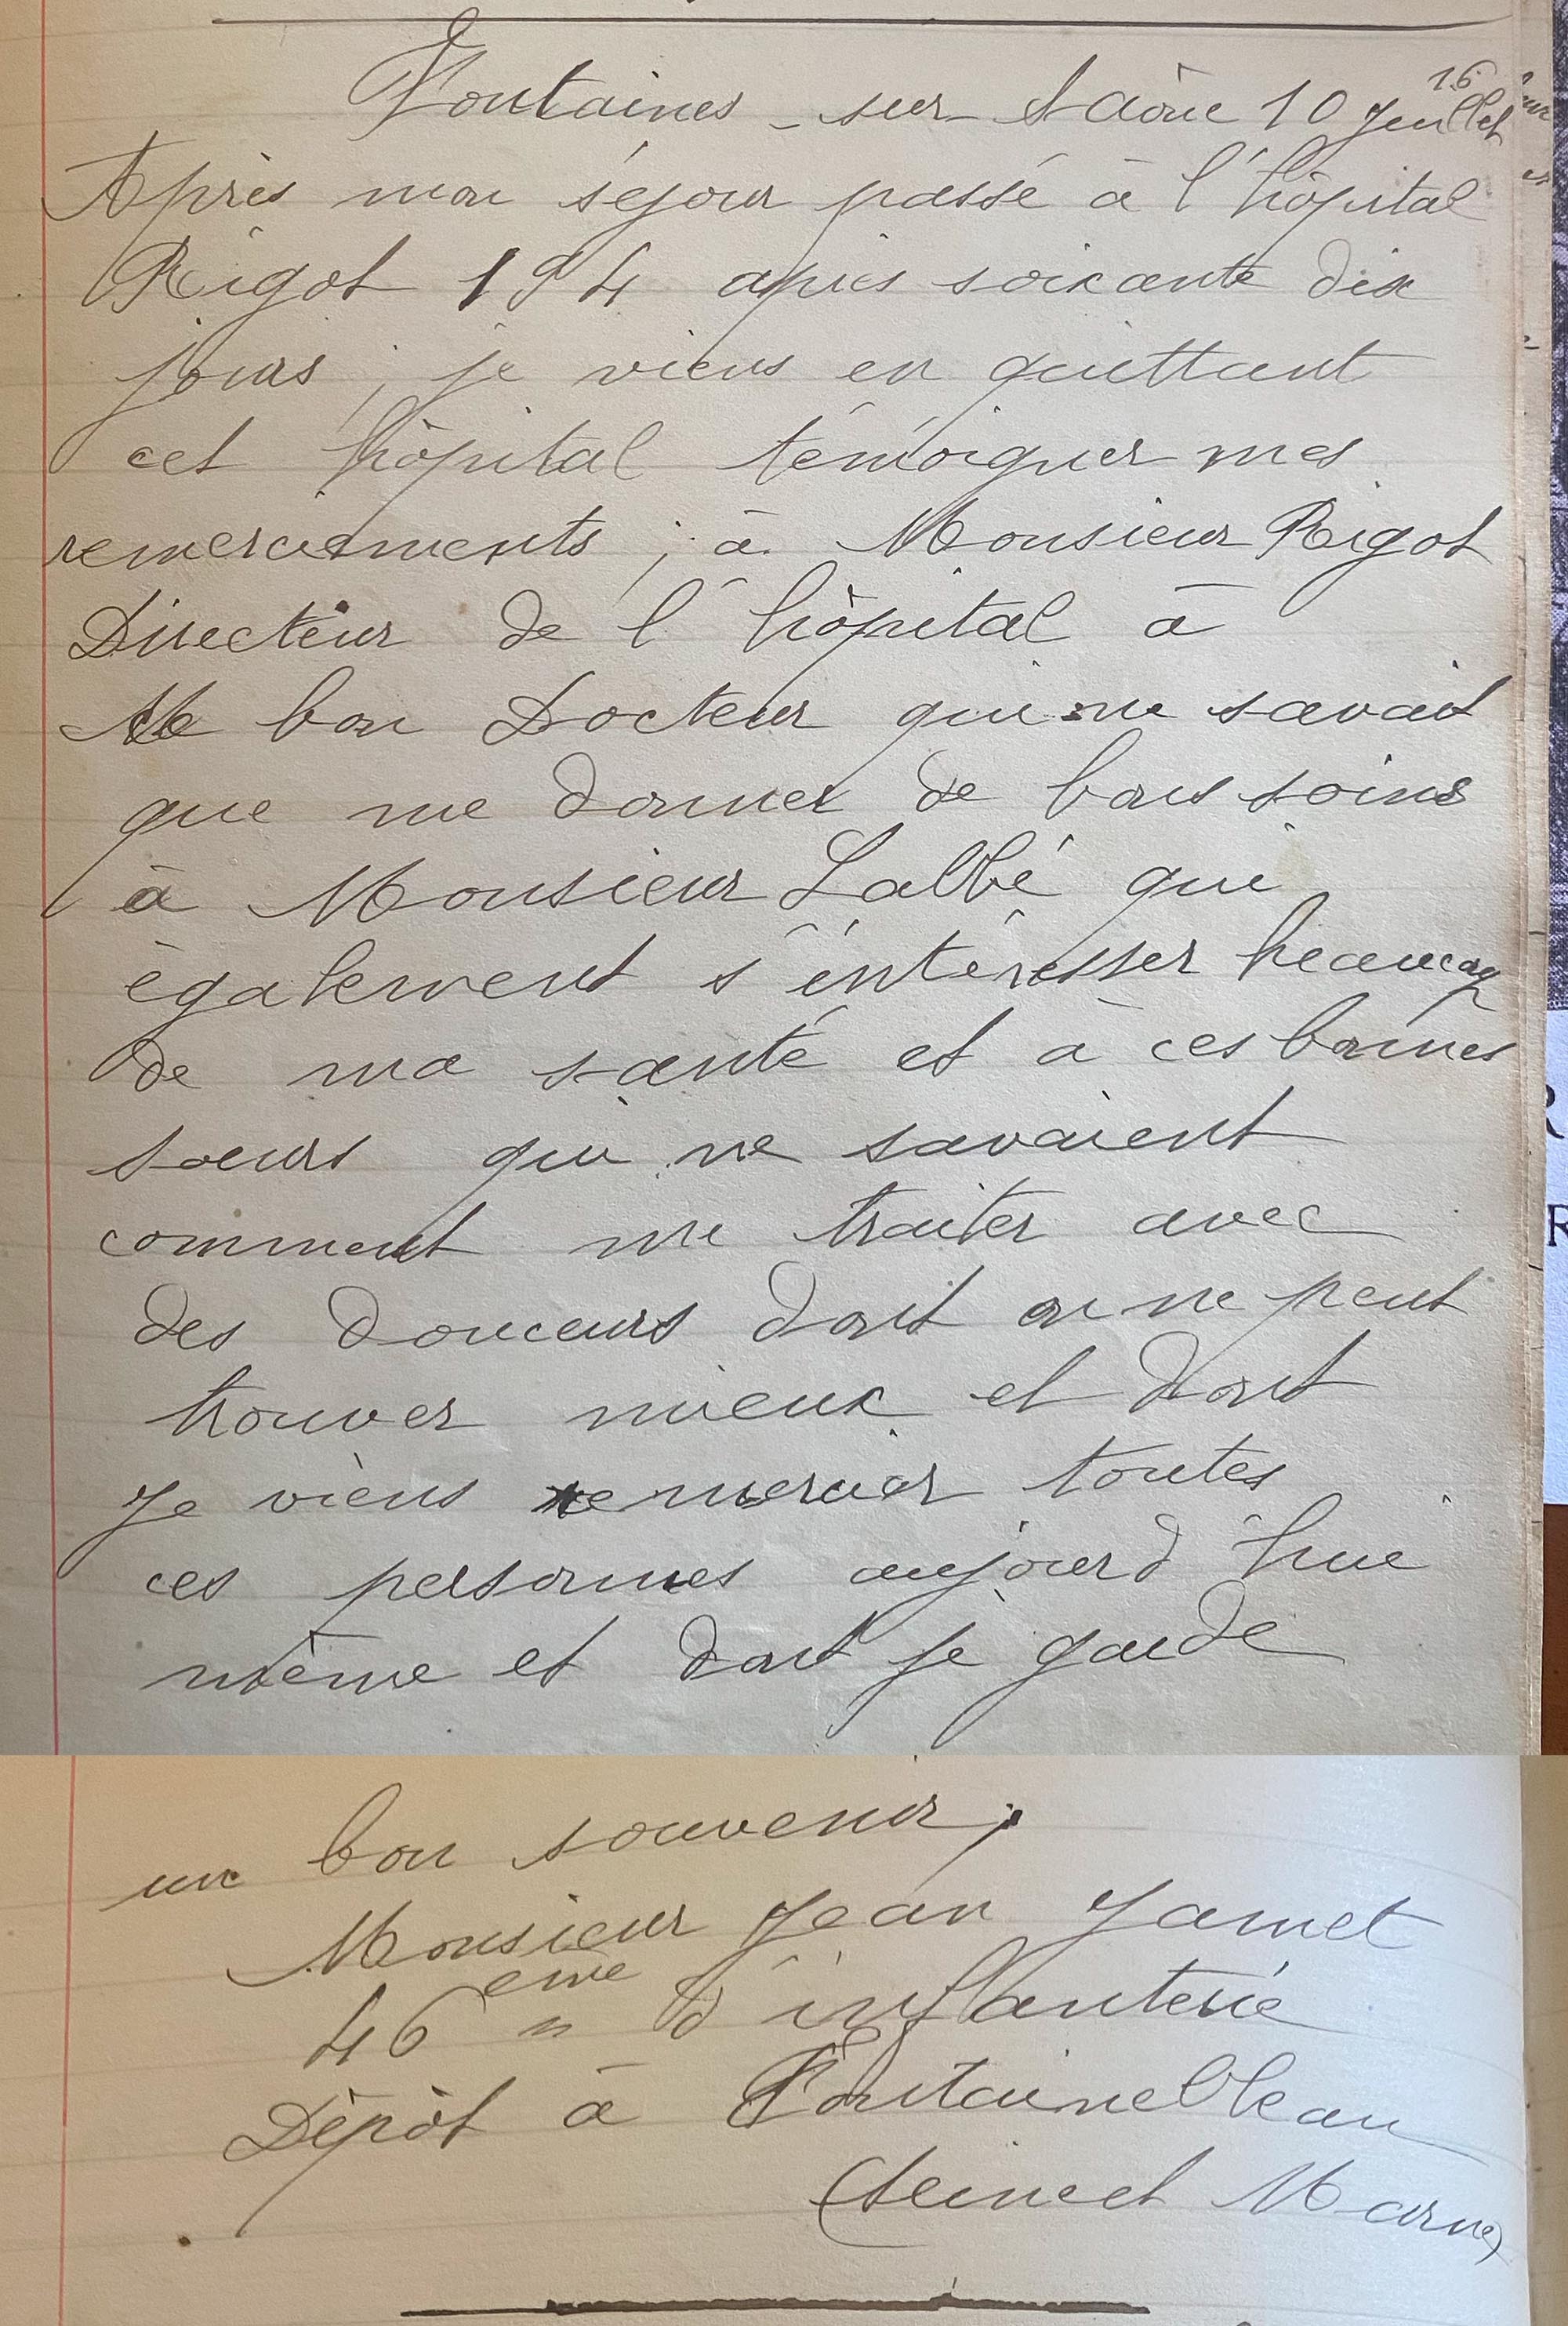 Fontaines - sur - Saône 10 Juillet 16
Après mon séjour passé à l'hôpital
Rigot 194 après soixante dix
jours ; je viens en quittant
cet hôpital témoigner mes
remerciements ; à Monsieur Rigot
Directeur de l'hôpital à
bon Docteur qui ne savait
que me donner de bons soins
à Monsieur Labbé qui
également s'intéresser beaucoup
de ma santé et à ces bonnes
soeurs qui ne savaient
comment me traiter avec
des douceurs dont on ne peut
trouver mieux et dont
Je viens remercier toutes
ces personnes aujourd'hui
même et dont je garde
un bon souvenir,
Monsieur Jean Jamet
46ème " d'infanterie
Dépôt à Fontainebleau
(Seine et Marne)